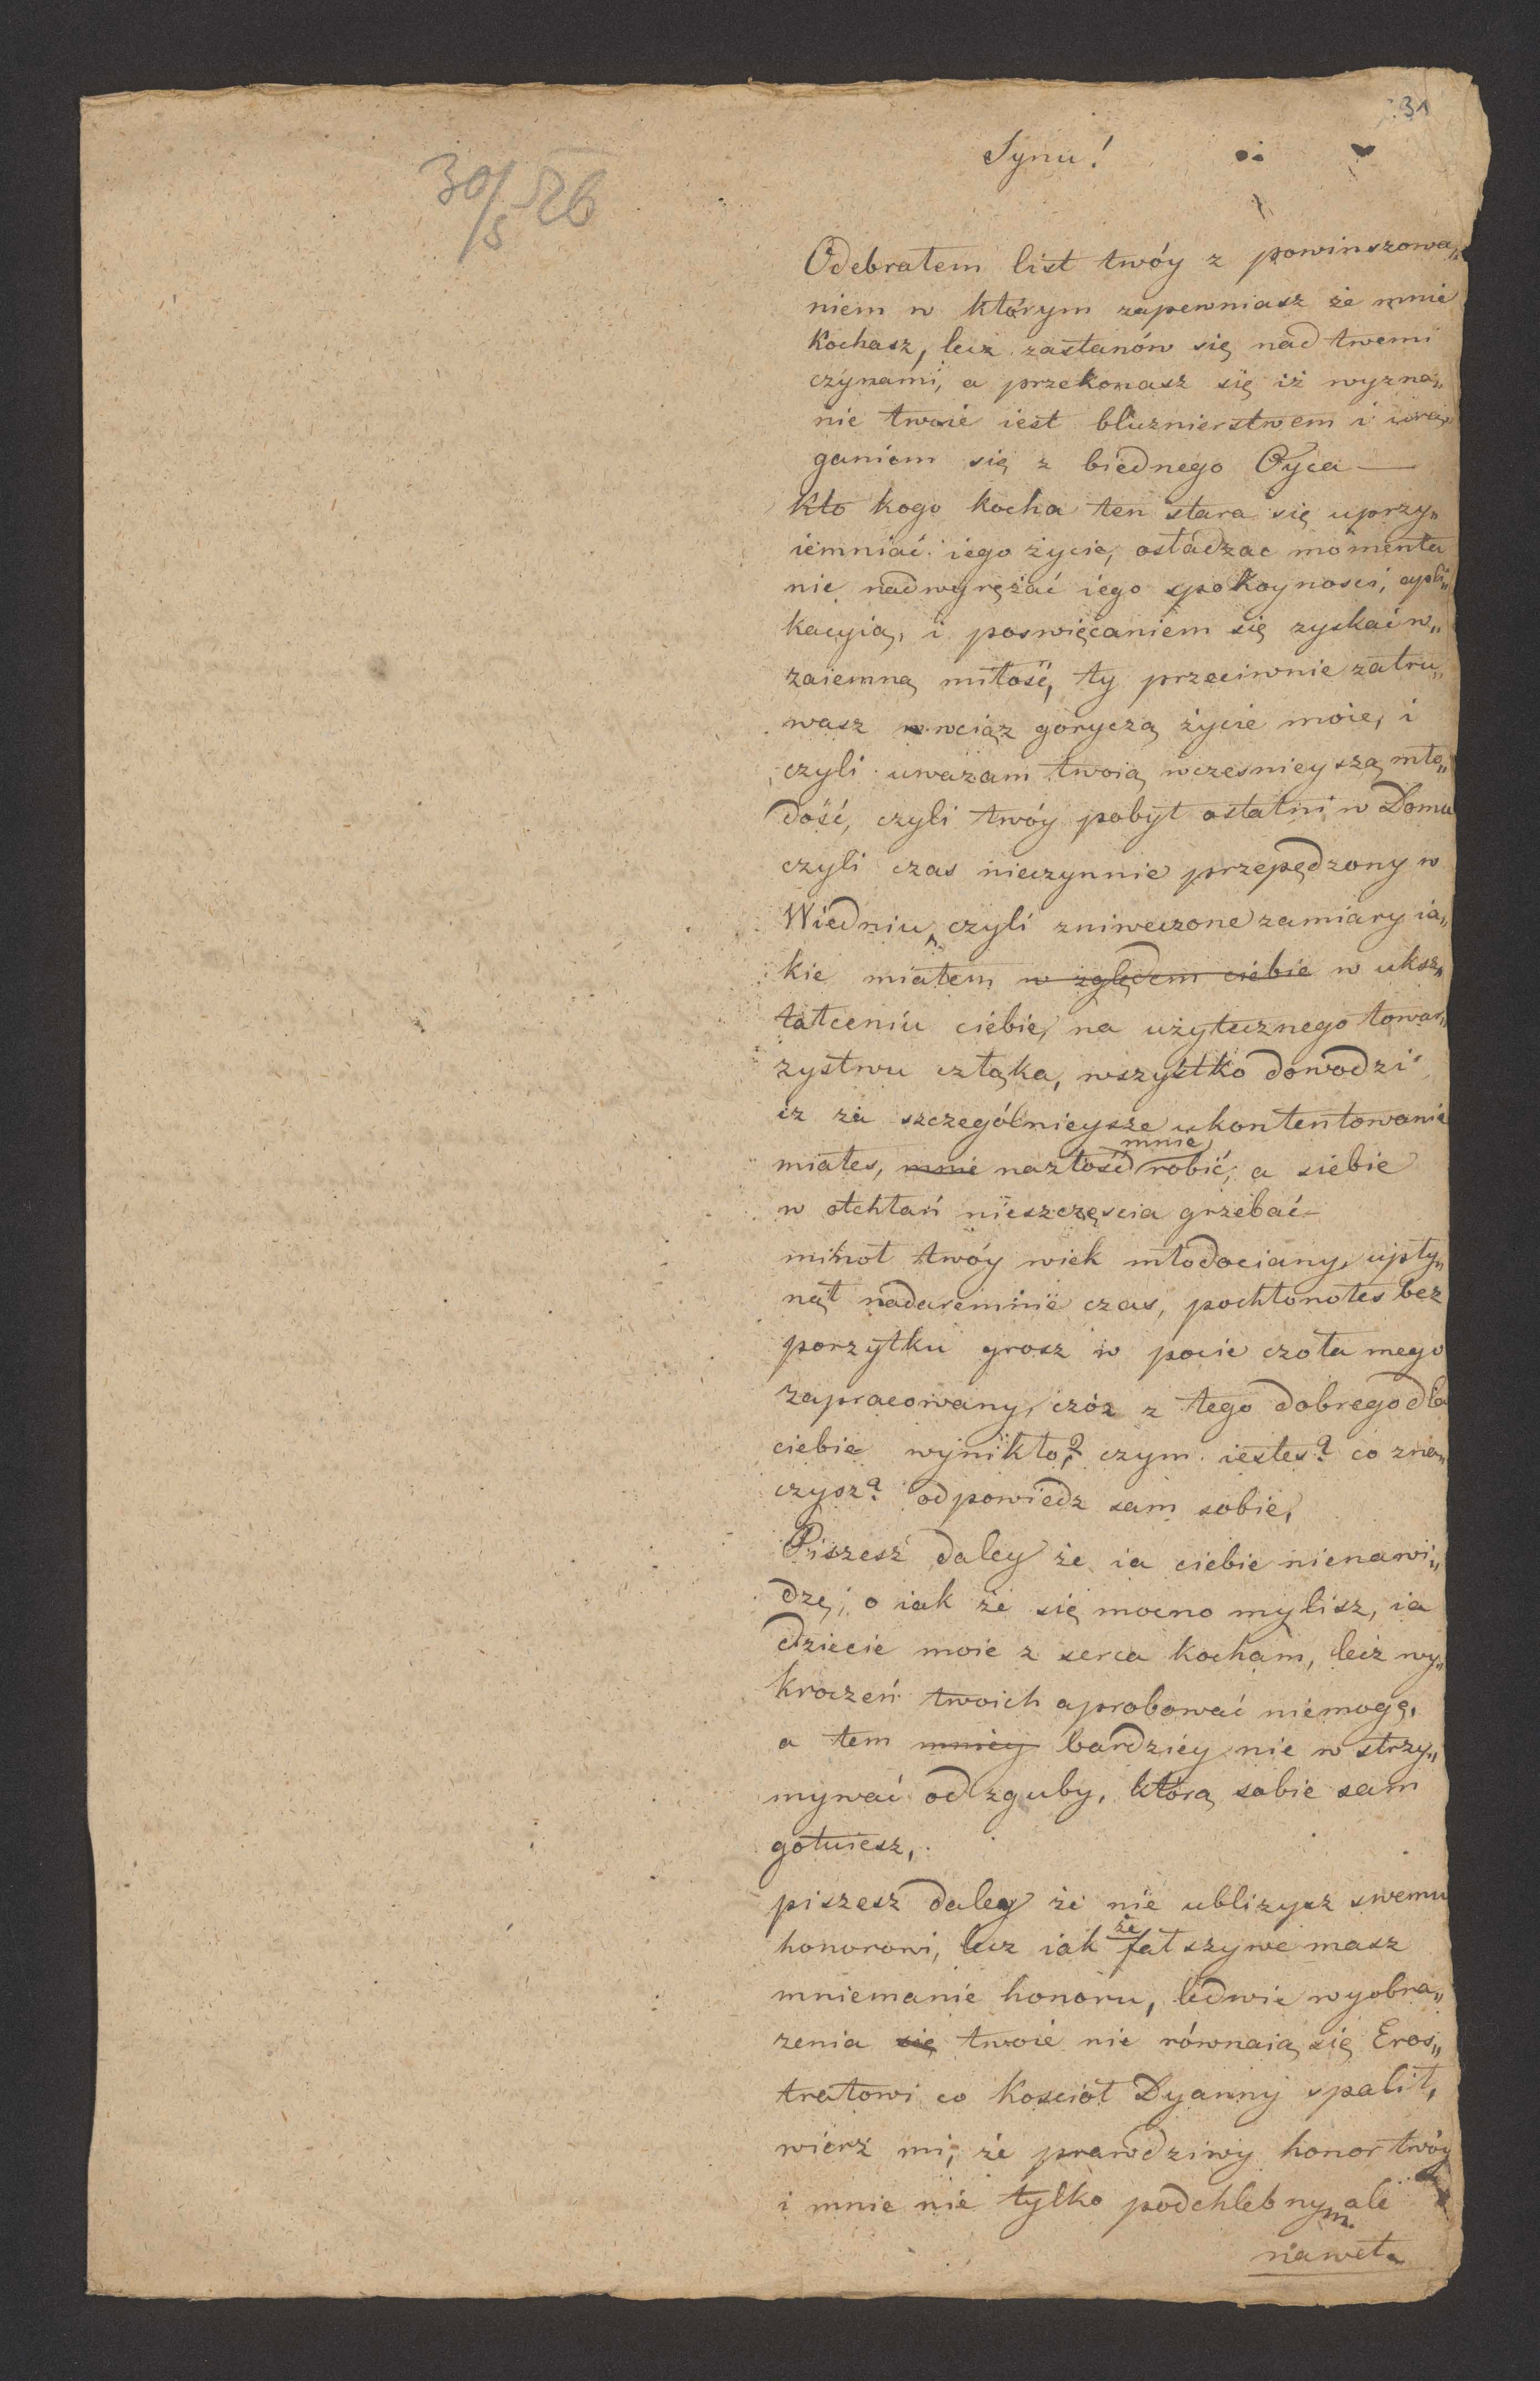 31
30/5 826
Synu!
Odebrałem list twóy z powinszowa„
niem w którym zapewniasz że mnie
kochasz, lecz zastanów się nad twemi
czynami, a przekonasz się iż wyzna„
nie twoie iest bluznierstwem i urą„
ganiem się z biednego Oyca —
Kto kogo kocha ten stara się uprzy„
iemniać iego życie, osładzac momenta
nie nadwyrężać iego spokoynosci, apli„
kacyią, i poswięcaniem się zyskać w„
zaiemną miłość, ty przeciwnie zatru„
wasz wciąz goryczą życie moie, i
czyli uwazam twoią wczesnieyszą mło„
dość, czyli twóy pobyt ostatni w Domu
czyli czas nieczynnie przepędzony w
Wiedniu, czyli zniweczone zamiary ia„
kie miałem w zględem ciebie w uksz„
tałceniu ciebie, na użytecznego towar„
zystwu człąka, wszystko dowodzi
iz za szczególnieysze ukontentowanie
miałes, mnie nazłość mnie robić, a siebie
w otchłań nieszczęscia grzebać —
minoł twóy wiek młodociany, upły„
nął nadaremnie czas, pochłonołes bez
porzytku grosz w pocie czoła mego
zapracowany, czóz z tego dobrego dla
ciebie wynikło? czym iestes? co zna„
czysz? odpowiedz sam sobie,
Piszesz daley że ia ciebie nienawi„
dzę, o iak że się mocno mylisz, ia
dziecie moie z serca kocham, lecz wy„
kroczeń twoich aprobować niemogę,
a tem mniey bardziéy nie w strzy„
mywać od zguby, którą sobie sam
gotuiesz,
piszesz daley że nie ublizysz swemu
honorowi, lecz iak że fałszywe masz
mniemanie honoru, ledwie wyobra„
zenia się twoie nie równaią się Eros„
tratowi co Kosciół Dyanny spalił,
wierz mi, że prawdziwy honor twóy
i mnie nie tylko podchlebnym ale
nawet